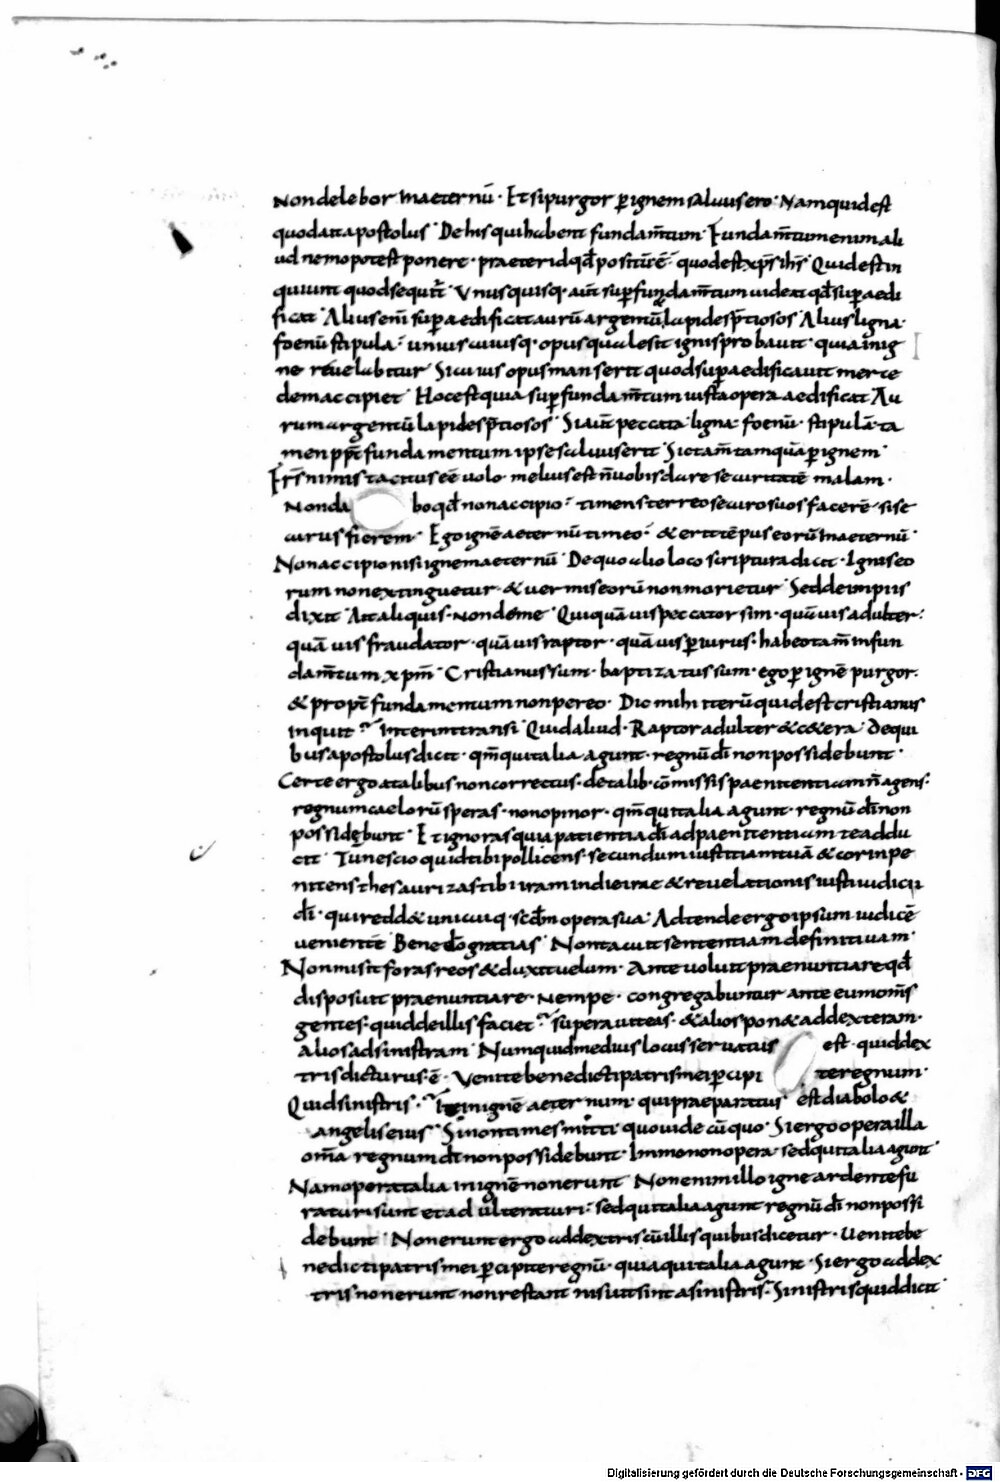 Nondelebor inaeternū · Et si purgor ꝑ ignem saluus ero · Nam quid est
quod ait apostolus · De his qui habent fundam̄tum · Fundam̄tum enim ali
ud nemo potest ponere · praeter id qđ positū ē · quod est xp̄s ih̄s · Quid est in
quiunt quod sequit̄ · Unusquisq · aut̄ suꝑ fundam̄tum uideat qđ suꝑ aedi
ficat · Alius eni suꝑaedificat aurū argentū lapides p̄tiosos · Alius ligna ·
foenū stipulā · unius cuiusq · opus quale sit ignis probauit · quia in ig
ne reuelabitur · Si cuius opus manserit quod suꝑaedificauit merce
dem accipiet · Hoc est quia suꝑ fundam̄tum iusta opera aedificat · Au
rum argentū lapides p̄tiosos · Si aut̄ peccata · ligna · foenū · stipulā · ta
men ppt̄ fundamentum ipse saluus erit · Sic tam̄ tamquā ꝑ ignem ·
Frs̄ nimis tacitus eē uolo · melius est n̄ uobis dare securitatē malam ·
Non da bo qđ non accipio · timens terreo securos uos facerē · si se
curus fierem · Ego ignē aeternū timeo · & erit tēpus eorū inaeternū ·
Non accipio nisi ignem aeternū · De quo alio loco scriptura dicit · Ignis eo
rum non extinguetur · & uermis eorū non morietur · Sed de impiis
dixit · Ait aliquis · Non de me · Quiquā uis peccator sim · quāuis adulter ·
quāuis fraudator · quāuis raptor · quāuis ꝑiurus · habeo tam̄ in fun
dam̄tum xpm̄ · Cristianus sum · baptizatus sum · ego ꝑ ignē purgor ·
& propt̄ fundamentum non pereo · Dic mihi iterū quid est cristianus
inquit · Interim transi · Quid aliud · Raptor adulter & cetera · De qui
bus apostolus dicit · qm̄ qui talia agunt · regnū dī non possidebunt ·
Certe ergo a talibus non correctus · de talib · cōmissis paenitentiam n̄ agens ·
regnum caelorū speras · non opinor · qm̄ qui talia agunt · regnū dī non
possidebunt · Et ignoras quia patientia dī ad paenitentiam te addu
cit · Tu nescio quid tibi pollicens · secundum iustitiam tuā & cor inpe
nitens thesaurizas tibi iram in die irae & reuelationis iusti iudicii
dī · qui redd& unicuiq · scd̄m opera sua · Adtende ergo ipsum iudicē
uenientē · Bene dō gratias · Non tacuit sententiam definitiuam ·
Non misit foras reos & duxit uelum · Ante uoluit praenuntiare qđ
disposuit praenuntiare · Nempe · congregabuntur ante eum om̄s
gentes · quid de illis faciet · superauit eas · & alios pon& ad dexteram ·
alios ad sinistram · Numquid medius locus seruatus est · quid dex
tris dicturus ē · Uenite benedicti patris mei ꝑcipi te regnum ·
Quid sinistris · Ite in ignē aeternum · qui praeparatus est diabolo &
angelis eius · Si non times mitti quo uide cū quo · Si ergo opera illa
om̄a regnum dī non possidebunt · Immo non opera · sed qui talia agunt ·
Nam opera talia in ignē non erunt · Non enim illo igne ardente fu
raturi sunt et adulteraturi · sed qui talia agunt regnū dī non possi
debunt · Non erunt ergo ad dextris cū illis quibus dicetur · Uenite be
nedicti patris mei ꝑcipite regnū · quia qui talia agunt · Si ergo ad dex
tris non erunt non restant nisi ut sint a sinistris · Sinistris quid dicit ·
Digitalisierung gefördert durch die Deutsche Forschungsgemeinschaft - DFG